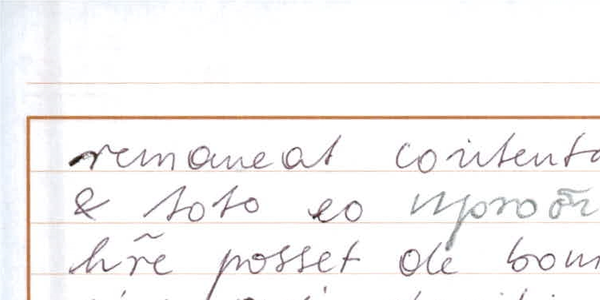 remaneat contenta
& toto eo
hr̃e posset de bon